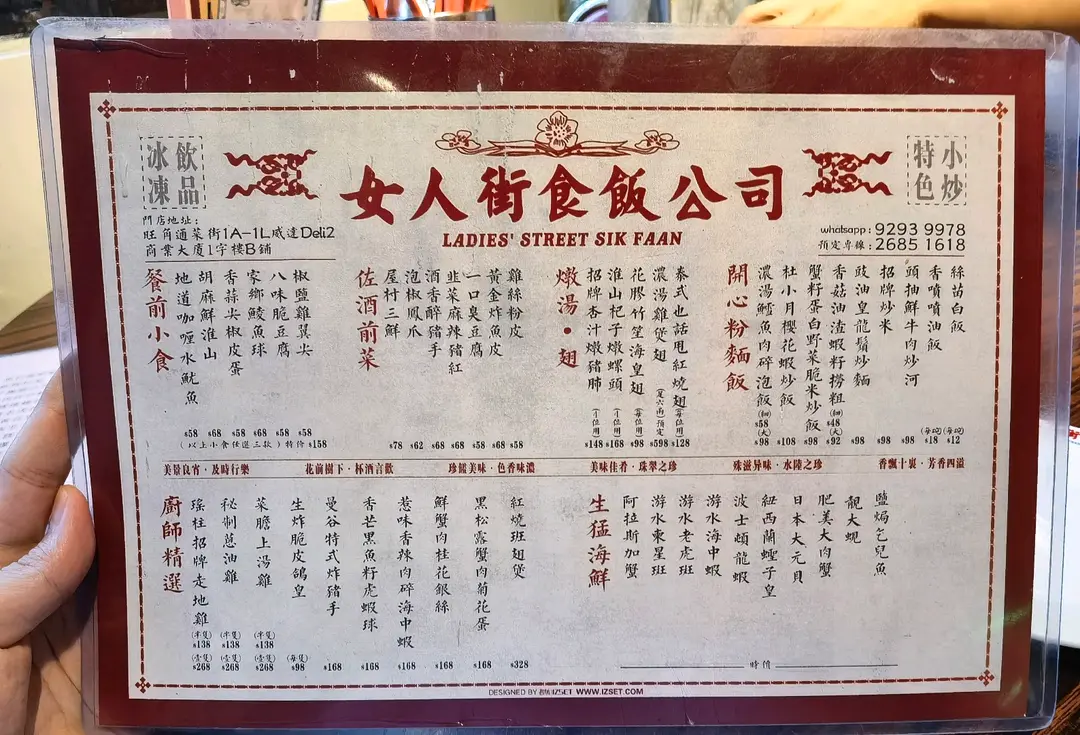 飲品
冰凍
小炒
特色
女人街食飯公司
LADIES' STREET SIK FAAN
門店地址：
旺角通菜街1A-1L威達Deli2
商業大廈1字樓B鋪
whatsapp : 9293 9978
預定專線 : 2685 1618
餐前小食
地道咖喱水魷魚 $58
胡麻鮮淮山 $68
香蒜尖椒皮蛋 $58
家鄉鯪魚球 $68
八味脆豆腐 $58
椒鹽雞翼尖 $58
(以上小食任選三款) 特价 $158
佐酒前菜
屋村三鮮 $78
泡椒鳳爪 $62
酒香醉豬手 $68
韭菜麻辣豬紅 $68
一口臭豆腐 $58
黃金炸魚皮 $68
雞絲粉皮 $58
燉湯·翅
招牌杏汁燉豬肺 (十位用) $148
淮山杞子燉螺頭 (十位用) $168
花膠竹笙海皇翅 (每位用) $98
濃湯雞煲翅 (足六両) 預定 $598
泰式也話甩紅燒翅 (每位用) $128
開心粉麵飯
濃湯鱈魚肉碎泡飯 (細) $58 (大) $98
杜小月櫻花蝦炒飯 $108
蟹籽蛋白野菜脆米炒飯 $98
香菇油渣蝦籽撈粗 (細) $48 (大) $92
豉油皇龍鬚炒麵 $98
招牌炒米 $98
頭抽鮮牛肉炒河 $98
香噴噴油飯 (每碗) $18
絲苗白飯 (每碗) $12
美景良宵·及時行樂
花前樹下·杯酒言歡
珍餚美味·色香味濃
美味佳肴·珠翠之珍
殊滋异味·水陸之珍
香飄十裏·芳香四溢
廚師精選
瑤柱招牌走地雞 (半隻) $138 (壹隻) $268
秘制蔥油雞 (半隻) $138 (壹隻) $268
菜膽上湯雞 (半隻) $138 (壹隻) $268
生炸脆皮鴿皇 (每隻) $98
曼谷特式炸豬手 $168
香芒黑魚籽虎蝦球 $168
惹味香辣肉碎海中蝦 $168
鮮蟹肉桂花銀絲 $168
黑松露蟹肉菊花蛋 $168
紅燒班翅煲 $328
生猛海鮮
阿拉斯加蟹
游水東星班
游水老虎班
游水海中蝦
波士頓龍蝦
紐西蘭蟶子皇
日本大元貝
肥美大肉蟹
靚大蜆
鹽焗乞兒魚
時價
DESIGNED BY IZSET WWW.IZSET.COM